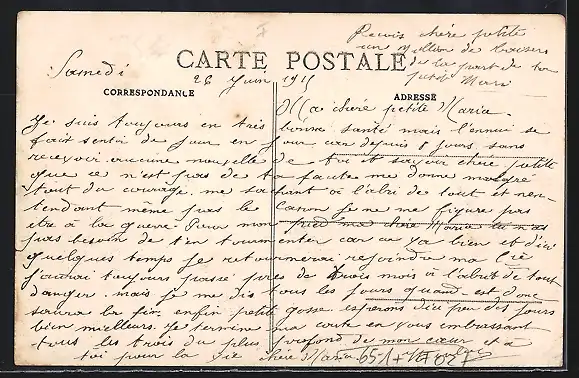 Reçois chère petite
un million de baisers
de la part de ton
petit Mari
CARTE POSTALE
Samedi 26 Juin 1915
CORRESPONDANCE
ADRESSE
Ma chère petite Maria
Je suis toujours en très bonne santé mais l'ennui se
fait sentir de jour en jour car depuis 8 jours sans
recevoir aucune nouvelle de toi et savoir chère petite
que ce n'est pas de ta faute me donne malgré
tout du courage. me sachant à l'abri de tout et n'en-
tendant même pas le canon je ne me figure pas
être à la guerre. Pour mon pied ma chère Maria tu n'as
pas besoin de t'en tourmenter car ça va bien et d'ici
quelques temps je retournerai rejoindre ma Cie
j'aurai toujours passé près de trois mois à l'abri de tout
danger. mais je me dis tous les jours quand est donc
sera la fin. enfin petite gosse. esperons dieu peu des jours
bien meilleurs. Je termine ma carte en vous embrassant
tous les trois du plus profond de mon cœur et à
toi pour la vie chère Maria